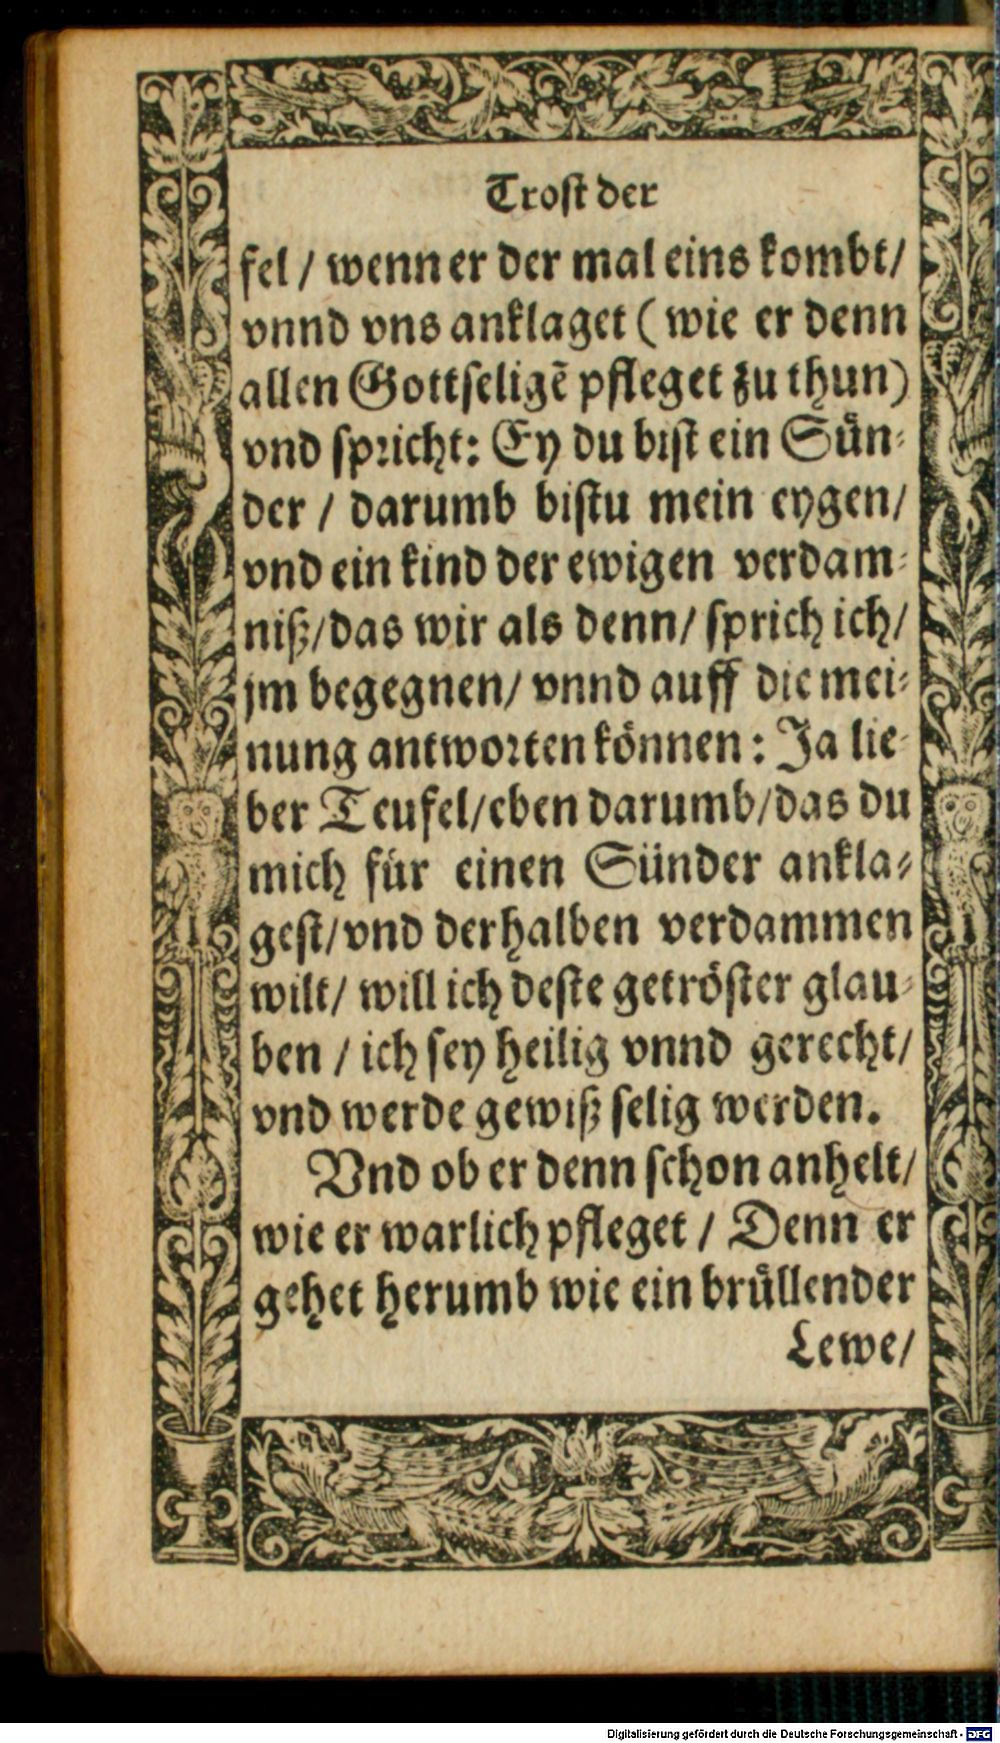 Trost der
fel / wenn er der mal eins kombt/
vnnd vns anklaget ( wie er denn
allen Gottseligẽ pfleget zu thun)
vnd spricht: Ey du bist ein Sün-
der / darumb bistu mein eygen/
vnd ein kind der ewigen verdam-
niß/das wir als denn/ sprich ich/
jm begegnen/ vnnd auff die mei-
nung antworten können: Ja lie-
ber Teufel/eben darumb/das du
mich für einen Sünder ankla-
gest/vnd derhalben verdammen
wilt/ will ich deste getröster glau-
ben / ich sey heilig vnnd gerecht/
vnd werde gewiß selig werden.
Vnd ob er denn schon anhelt/
wie er warlich pfleget / Denn er
gehet herumb wie ein brüllender
Lewe/
Digitalisierung gefördert durch die Deutsche Forschungsgemeinschaft - DFG